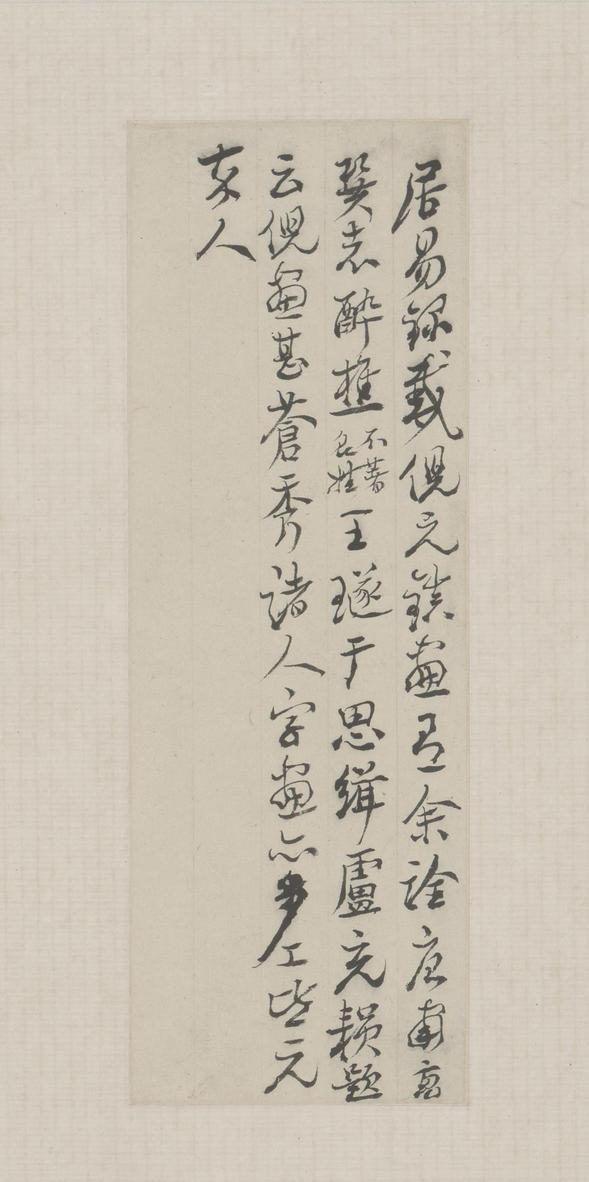 居易錄載倪元鎮畫有余詮唐肅高
巽志醉樵不著名姓王璲于思緝盧充頛題
云倪畫甚蒼秀諸人字畫亦多工皆元
末人